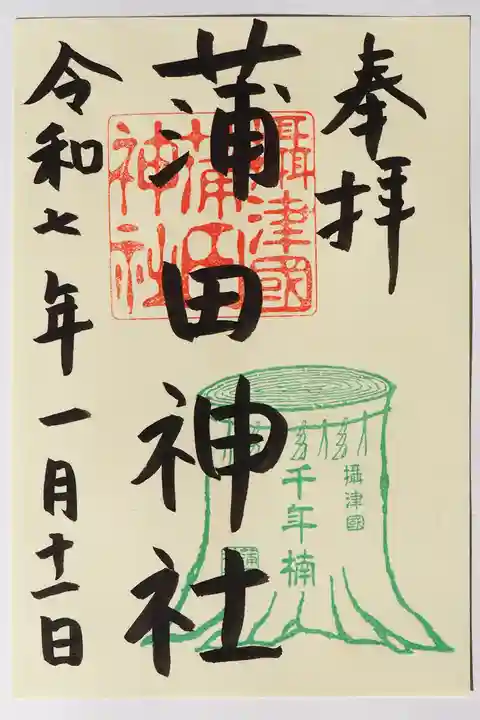 奉拝
攝津國
蒲田
神社
蒲田神社
攝津國
千年楠
蒲
令和七年一月十一日